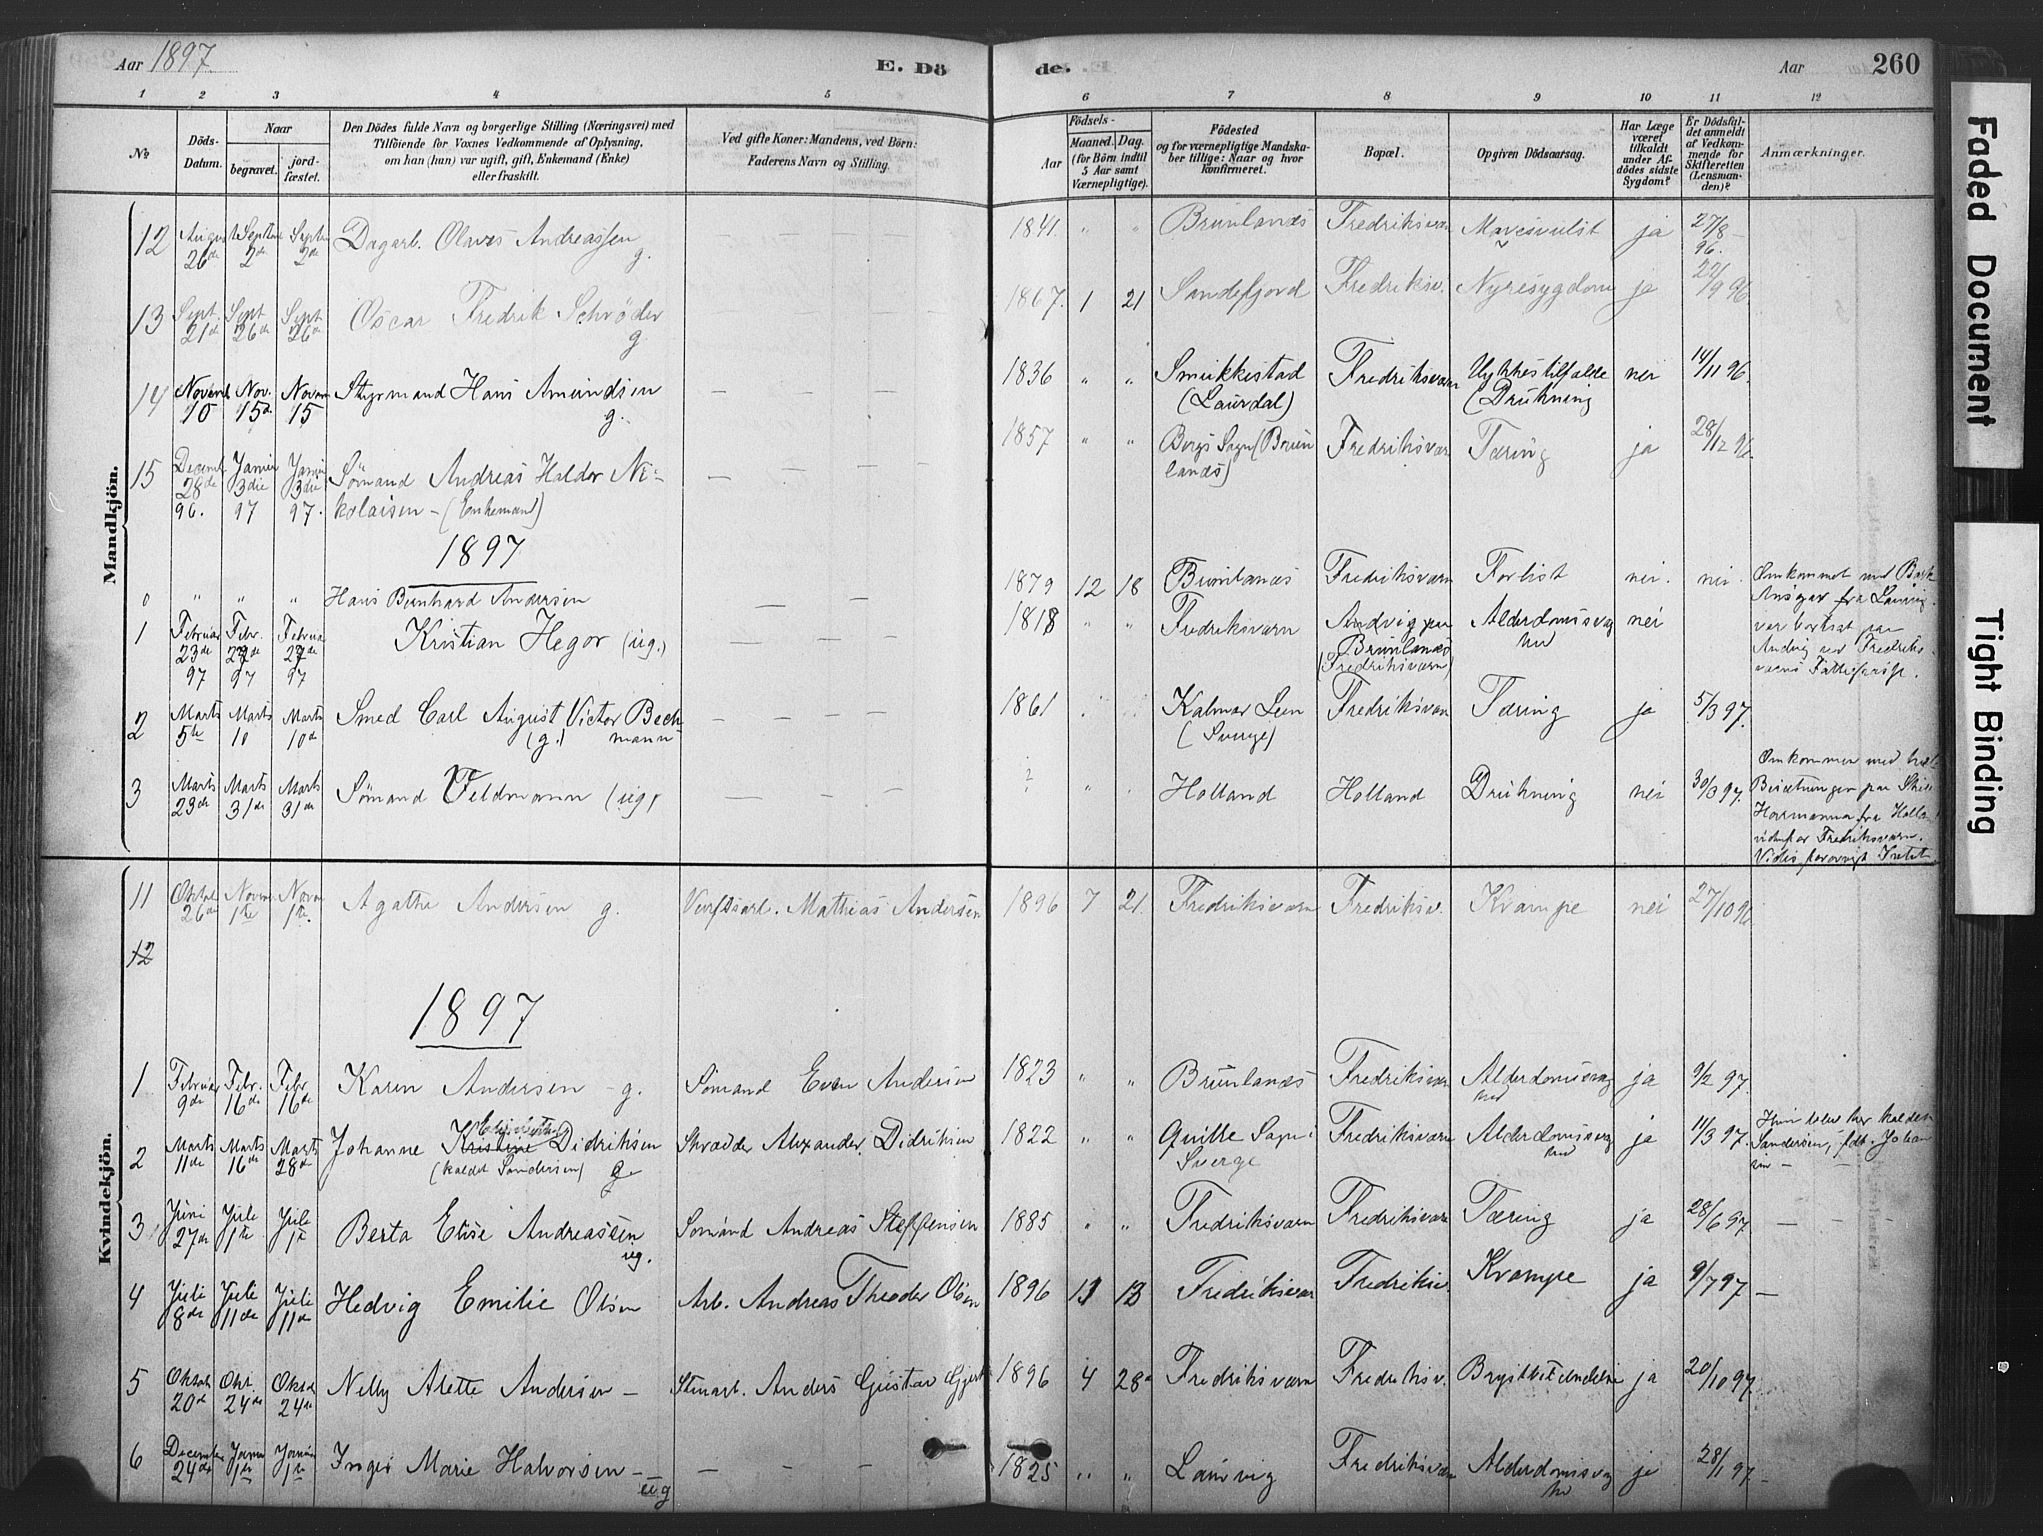 Aar 1897
E. Dö
de.
Aar
260
1 2 3 4 5 6 7 8 9 10 11 12
No
Döds-Datum.
Naar
begravet.
jord-fæstet.
Den Dödes fulde Navn og borgerlige Stilling (Næringsvei) med
Tilföiende for Voxnes Vedkommende af Oplysning,
om han (hun) var ugift, gift, Enkemand (Enke)
eller fraskilt.
Ved gifte Koner: Mandens, ved Börn:
Faderens Navn og Stilling.
Födsels-
Aar
Maaned.
Dag.
(for Börn indtil
5 Aar samt
Værnepligtige).
Födested
og for værnepligtige Mandska-
ber tillige: Naar og hvor
konfirmeret.
Bopæl.
Opgiven Dödsaarsag.
Har Læge
været
tilkaldt
under Af-
dödes sidste
Sygdom?
Er Dödsfal-
det anmeldt
af Vedkom-
mende for
Skifteretten
(Lensman-
den)?
Anmærkninger.
Mandkjön.
12 August 26de Septem 2de Septem 2de Dagarb. Olaves Andreassen g. — — — 1841. " " Brunlanæs Fredriksvær Mavesvulst ja 27/8 – 96.
13 Sept 21de Sept 26de Sept 26de Oscar Fredrik Schrøder g. — — — 1867. 1 21 Sandefjord Fredriksv. Nyresygdom ja 22/9 96
14 Novemb 10 Nov. 15de Novem 15 Styrmand Hans Amundsen g. — — — 1836 " " Smukkestad (Laurdal) Fredriksværn Ulykkestilfælde (Drukning nei 14/11 96.
15 Decemb 28de 96. Januar 3die 97 Januar 3die 97. Sømand Andreas Haldor Ni-
kolaisen – (Enkemand) — — — 1857 " " Bergs Sogn (Brun
lanæs) Fredriksværn Tæring ja 28/12 96
1897
0 " " " Hans Bernhard Andersen — — 1879 12 18 Brunlanæs Fredriksværn Forlist nei. nei. Omkommet med Bark
Ansgar fra Laurvig.
1 Februar 23de 97 Febr. 27de 97 Februar 27 97 Kristian Hegor (ug.) — — — 1818 " " Fredriksværn Andvig paa
Brunlanæs
(Fredriksværn) Alderdomssvag
hed nei var bortsat paa
Andvig ved Fredriks-
værns
2 Marts 5te Marts 10 Marts 10de Smed Carl August Victor Bech-
(g.) mann — — — 1861 " " Kalmar Leen
(Sverige) Fredriksværn Tæring ja 5/3 97.
3 Marts 23de Marts 31de Marts 31de Sømand Feldmann (ug.) — — — ? " " Holland Holland Drukning nei 30/3 97. Omkommen med hele
Besætningen paa
fra Holland
Fredriksværn.
Kvindekjön.
11 Oktob 26de Novem 1te Novem 1te Agathe Andersen g. Verftsarb. Mathias Andersen 1896 7 21. Fredriksværn Fredriksv. Krampe nei 27/10 96
12
1897
1 Februar 9de Febr. 16de Febr 16de Karen Andersen – g. Sømand Even Andersen 1823 " " Brunlanæs Fredriksværn Alderdomssvag
hed ja 9/2 97.
2 Marts 11de Marts 16de Marts 28de Johanne Kristine Didriksen
(kaldet Sandersen) g. Skrædder Alexander Didriksen 1822 " " Quille Sogn i
Sverge Fredriksværn Alderdomssvag
hed ja 11/3 97. Hun blev her kaldet
Sandersen, født Johan
sen – –
3 Juni 27de Juli 1te Juli 1te Berta Elise Andreassen
ug. Sømand Andreas Steffensen 1885 " " Fredriksværn Fredriksværn Tæring ja 28/6 97. — — —
4 Juli 8de Juli 11de Juli 11de Hedvig Emilie Olsen Arb. Andreas Theodor Olsen 1896 11 13 Fredriksværn Fredriksv. Krampe ja 9/7 97. —
5 Oktob 20de Okt. 24de Oktob 24de Nelly Alette Andersen – Stenarb. Anders Gustav 1896 4 28 Fredriksværn Fredriksv. ja 20/10 97.
6 December 24de Januar 1te Januar 1te Inger Marie Halvorsen –
ug — — — 1825 " " Laurvig Fredriksværn Alderdomssvag
hed ja 28/1 97. –
Faded Document
Tight Binding